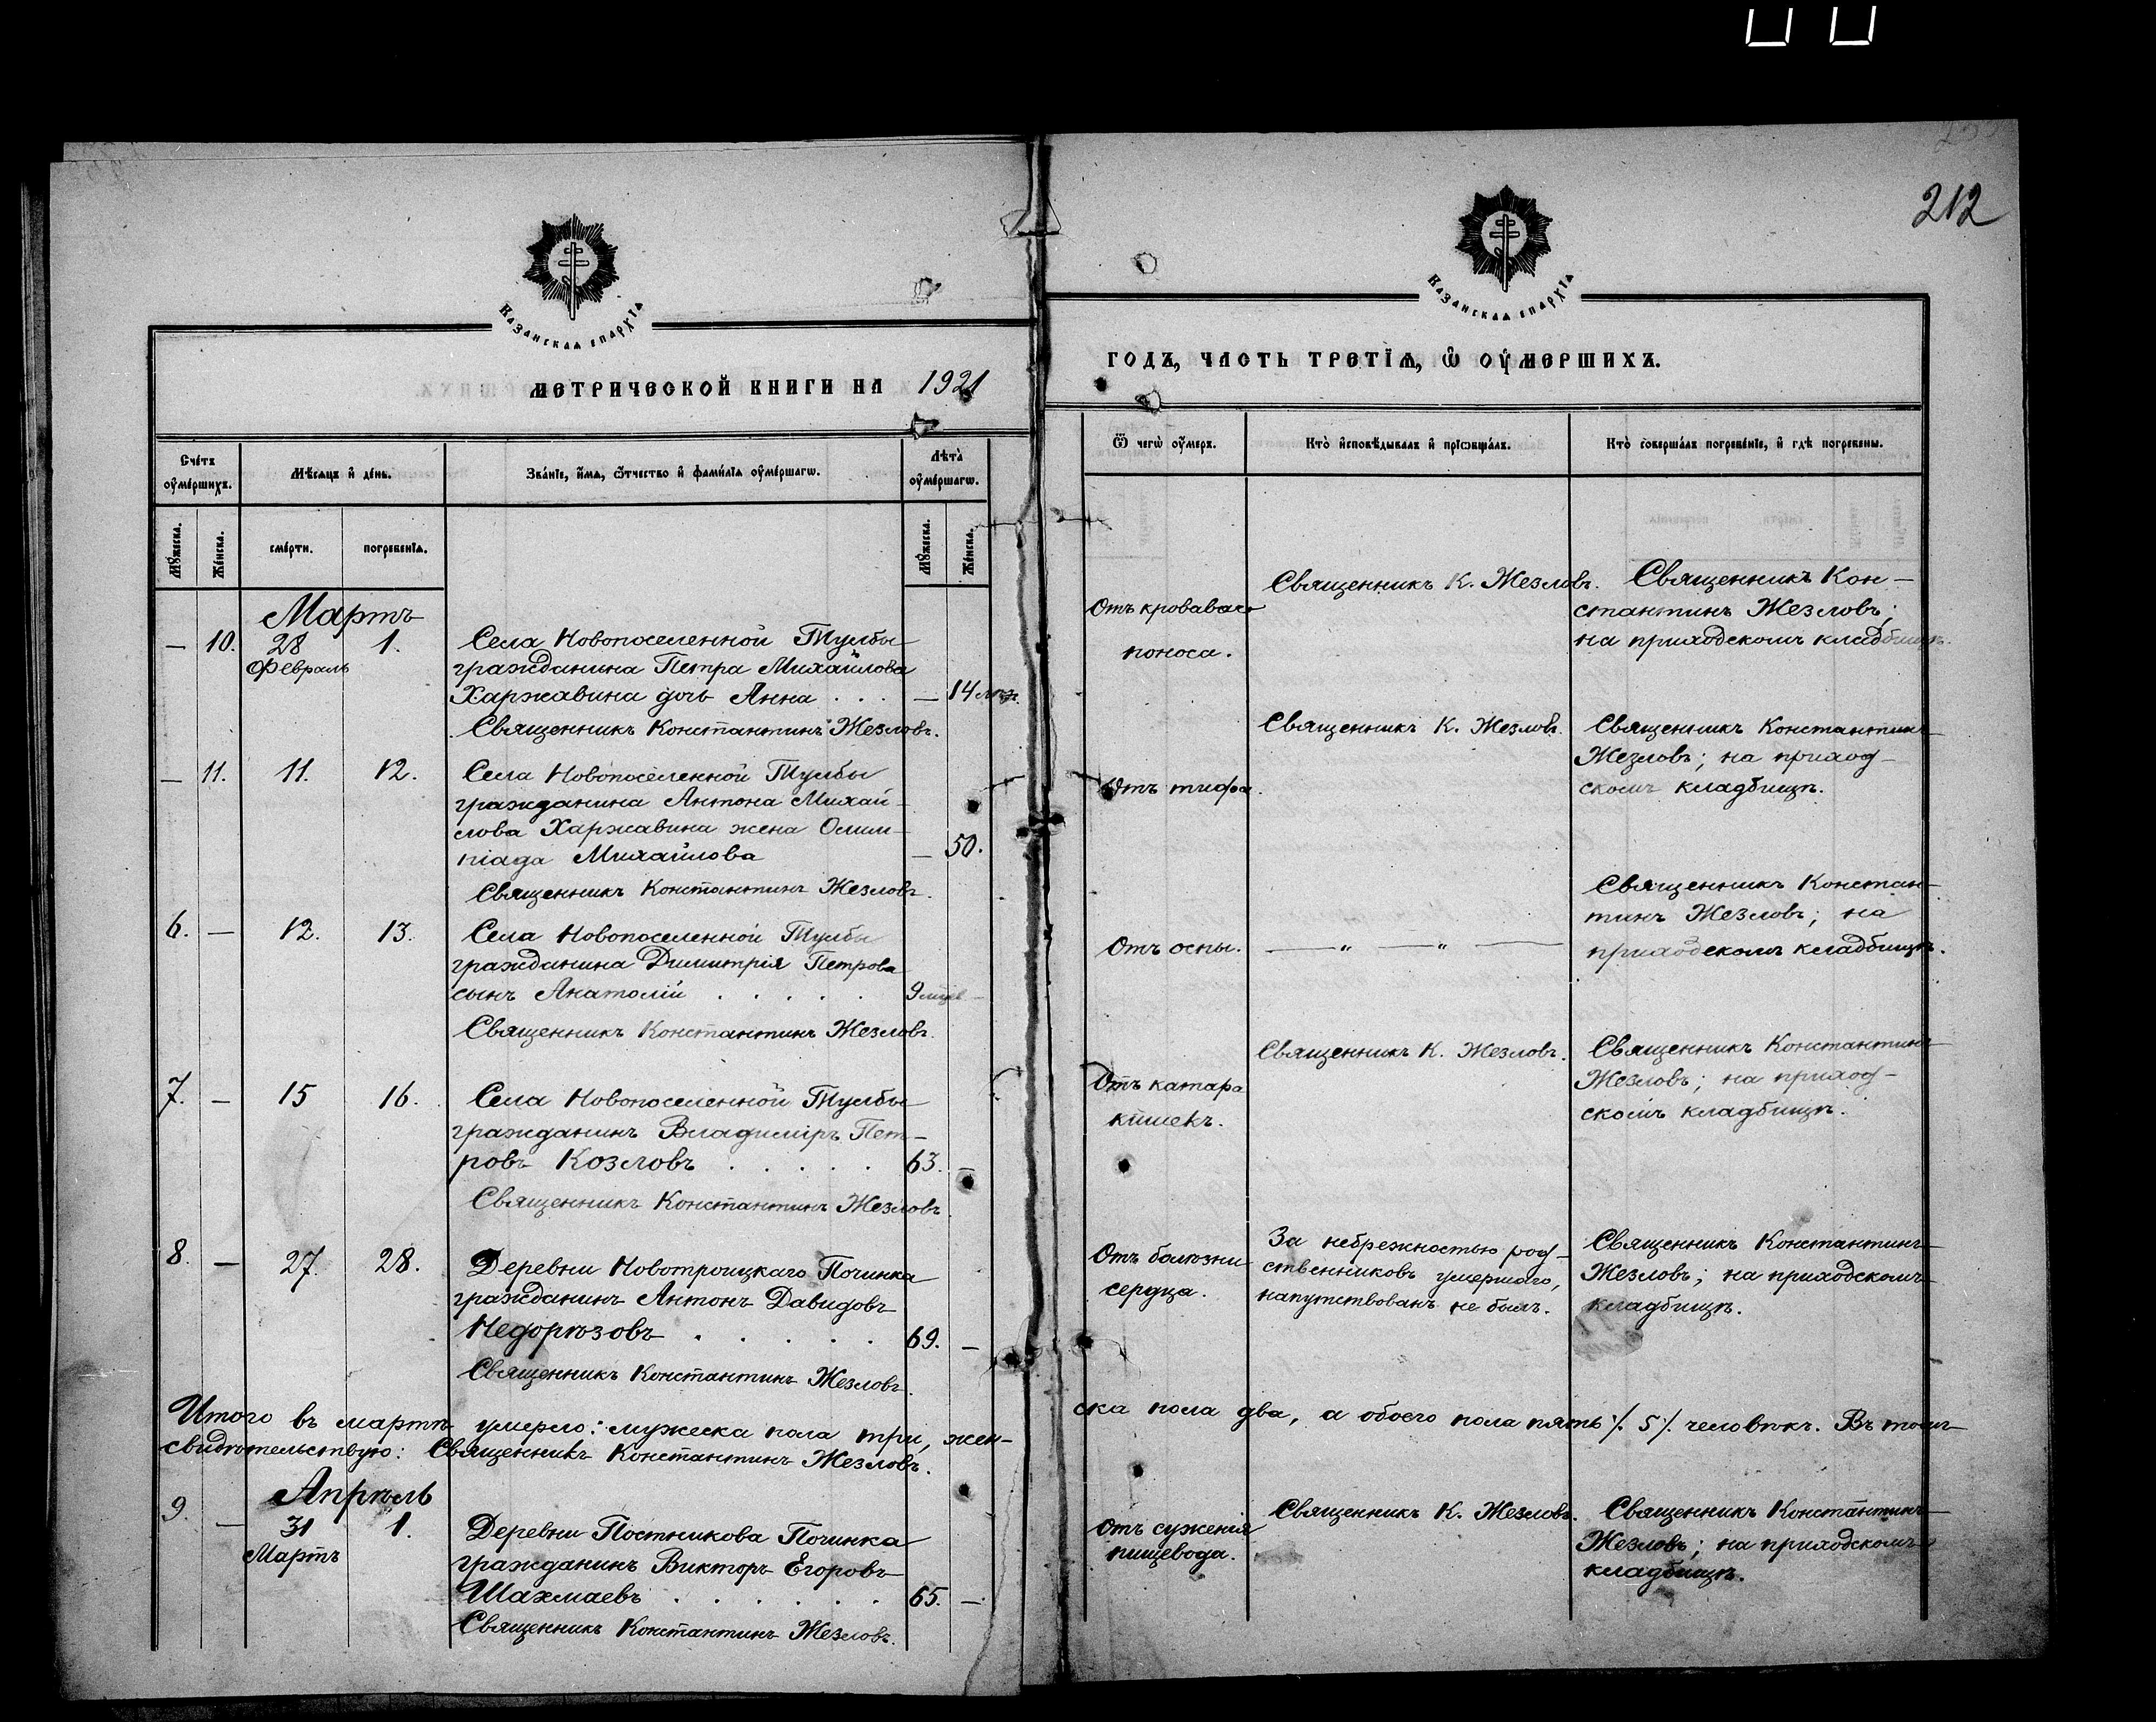 212
Казанскаѧ епархїѧ
Казанскаѧ епархїѧ
метрической книги на 1921
годъ, часть третїѧ, ѿ оу҆мершихъ.
Счетъ оу҆мершихъ.
Мѣсѧцъ и҆ день.
Званїе, и҆мѧ, ѻ҆тчество и҆ фамилїѧ оу҆мершагѡ.
Лѣта оу҆мершагѡ.
Ѿ чегѡ оу҆меръ.
Кто и҆сповѣдывалъ и҆ прїѡбщалъ.
Кто совершалъ погребенїе, и҆ гдѣ погребены.
Мꙋжеска.
Женска.
смерти.
погребенїѧ.
Мꙋжеска.
Женска.
Мартъ
— 10. 28 1. Села Новопоселенной Тулбы
Февраль гражданина Петра Михайлова
Харжавина дочь Анна . . . — 14
Священникъ Константинъ Жезловъ.
Отъ кроваваго
поноса.
Священникъ К. Жезловъ.
Священникъ Кон-
стантинъ Жезловъ;
на приходскомъ кладбищѣ.
— 11. 11. 12. Села Новопоселенной Тулбы
гражданина Антона Михай-
лова Харжавина жена Олим-
піада Михайлова — 50.
Священникъ Константинъ Жезловъ.
Отъ тифа.
Священникъ К. Жезловъ.
Священникъ Константинъ
Жезловъ; на приход-
скомъ кладбищѣ.
6. — 12. 13. Села Новопоселенной Тулбы
гражданина Димитрія Петрова
сынъ Анатолій . . . . . 9 —
Священникъ Константинъ Жезловъ.
Отъ оспы.
— „ — „ —
Священникъ Констан-
тинъ Жезловъ; на
приходскомъ кладбищѣ.
7. — 15 16. Села Новопоселенной Тулбы
гражданинъ Владиміръ Пет-
ровъ Козловъ . . . . . 63. —
Священникъ Константинъ Жезловъ
Отъ катара
кишекъ.
Священникъ К. Жезловъ.
Священникъ Константинъ
Жезловъ; на приход-
скомъ кладбищѣ.
8. — 27. 28. Деревни Новотроицкаго Починка
гражданинъ Антонъ Давидовъ
Недорѣзовъ . . . . . 69. —
Священникъ Константинъ Жезловъ.
Отъ болѣзни
сердца.
За небрежностью род-
ственниковъ умершаго,
напутствованъ не былъ.
Священникъ Константинъ
Жезловъ; на приходскомъ
кладбищѣ.
Итого въ мартѣ умерло: мужеска пола три, жен-
ска пола два, а обоего пола пять ·/. 5 ·/. человѣкъ. Въ томъ
свидѣтельствую: Священникъ Константинъ Жезловъ.
Апрѣль
9. — 31 1. Деревни Постникова Починка
Мартъ гражданинъ Викторъ Егоровъ
Шахмаевъ . . . . . . 65. —
Священникъ Константинъ Жезловъ.
Отъ суженія
пищевода.
Священникъ К. Жезловъ.
Священникъ Константинъ
Жезловъ; на приходскомъ
кладбищѣ.